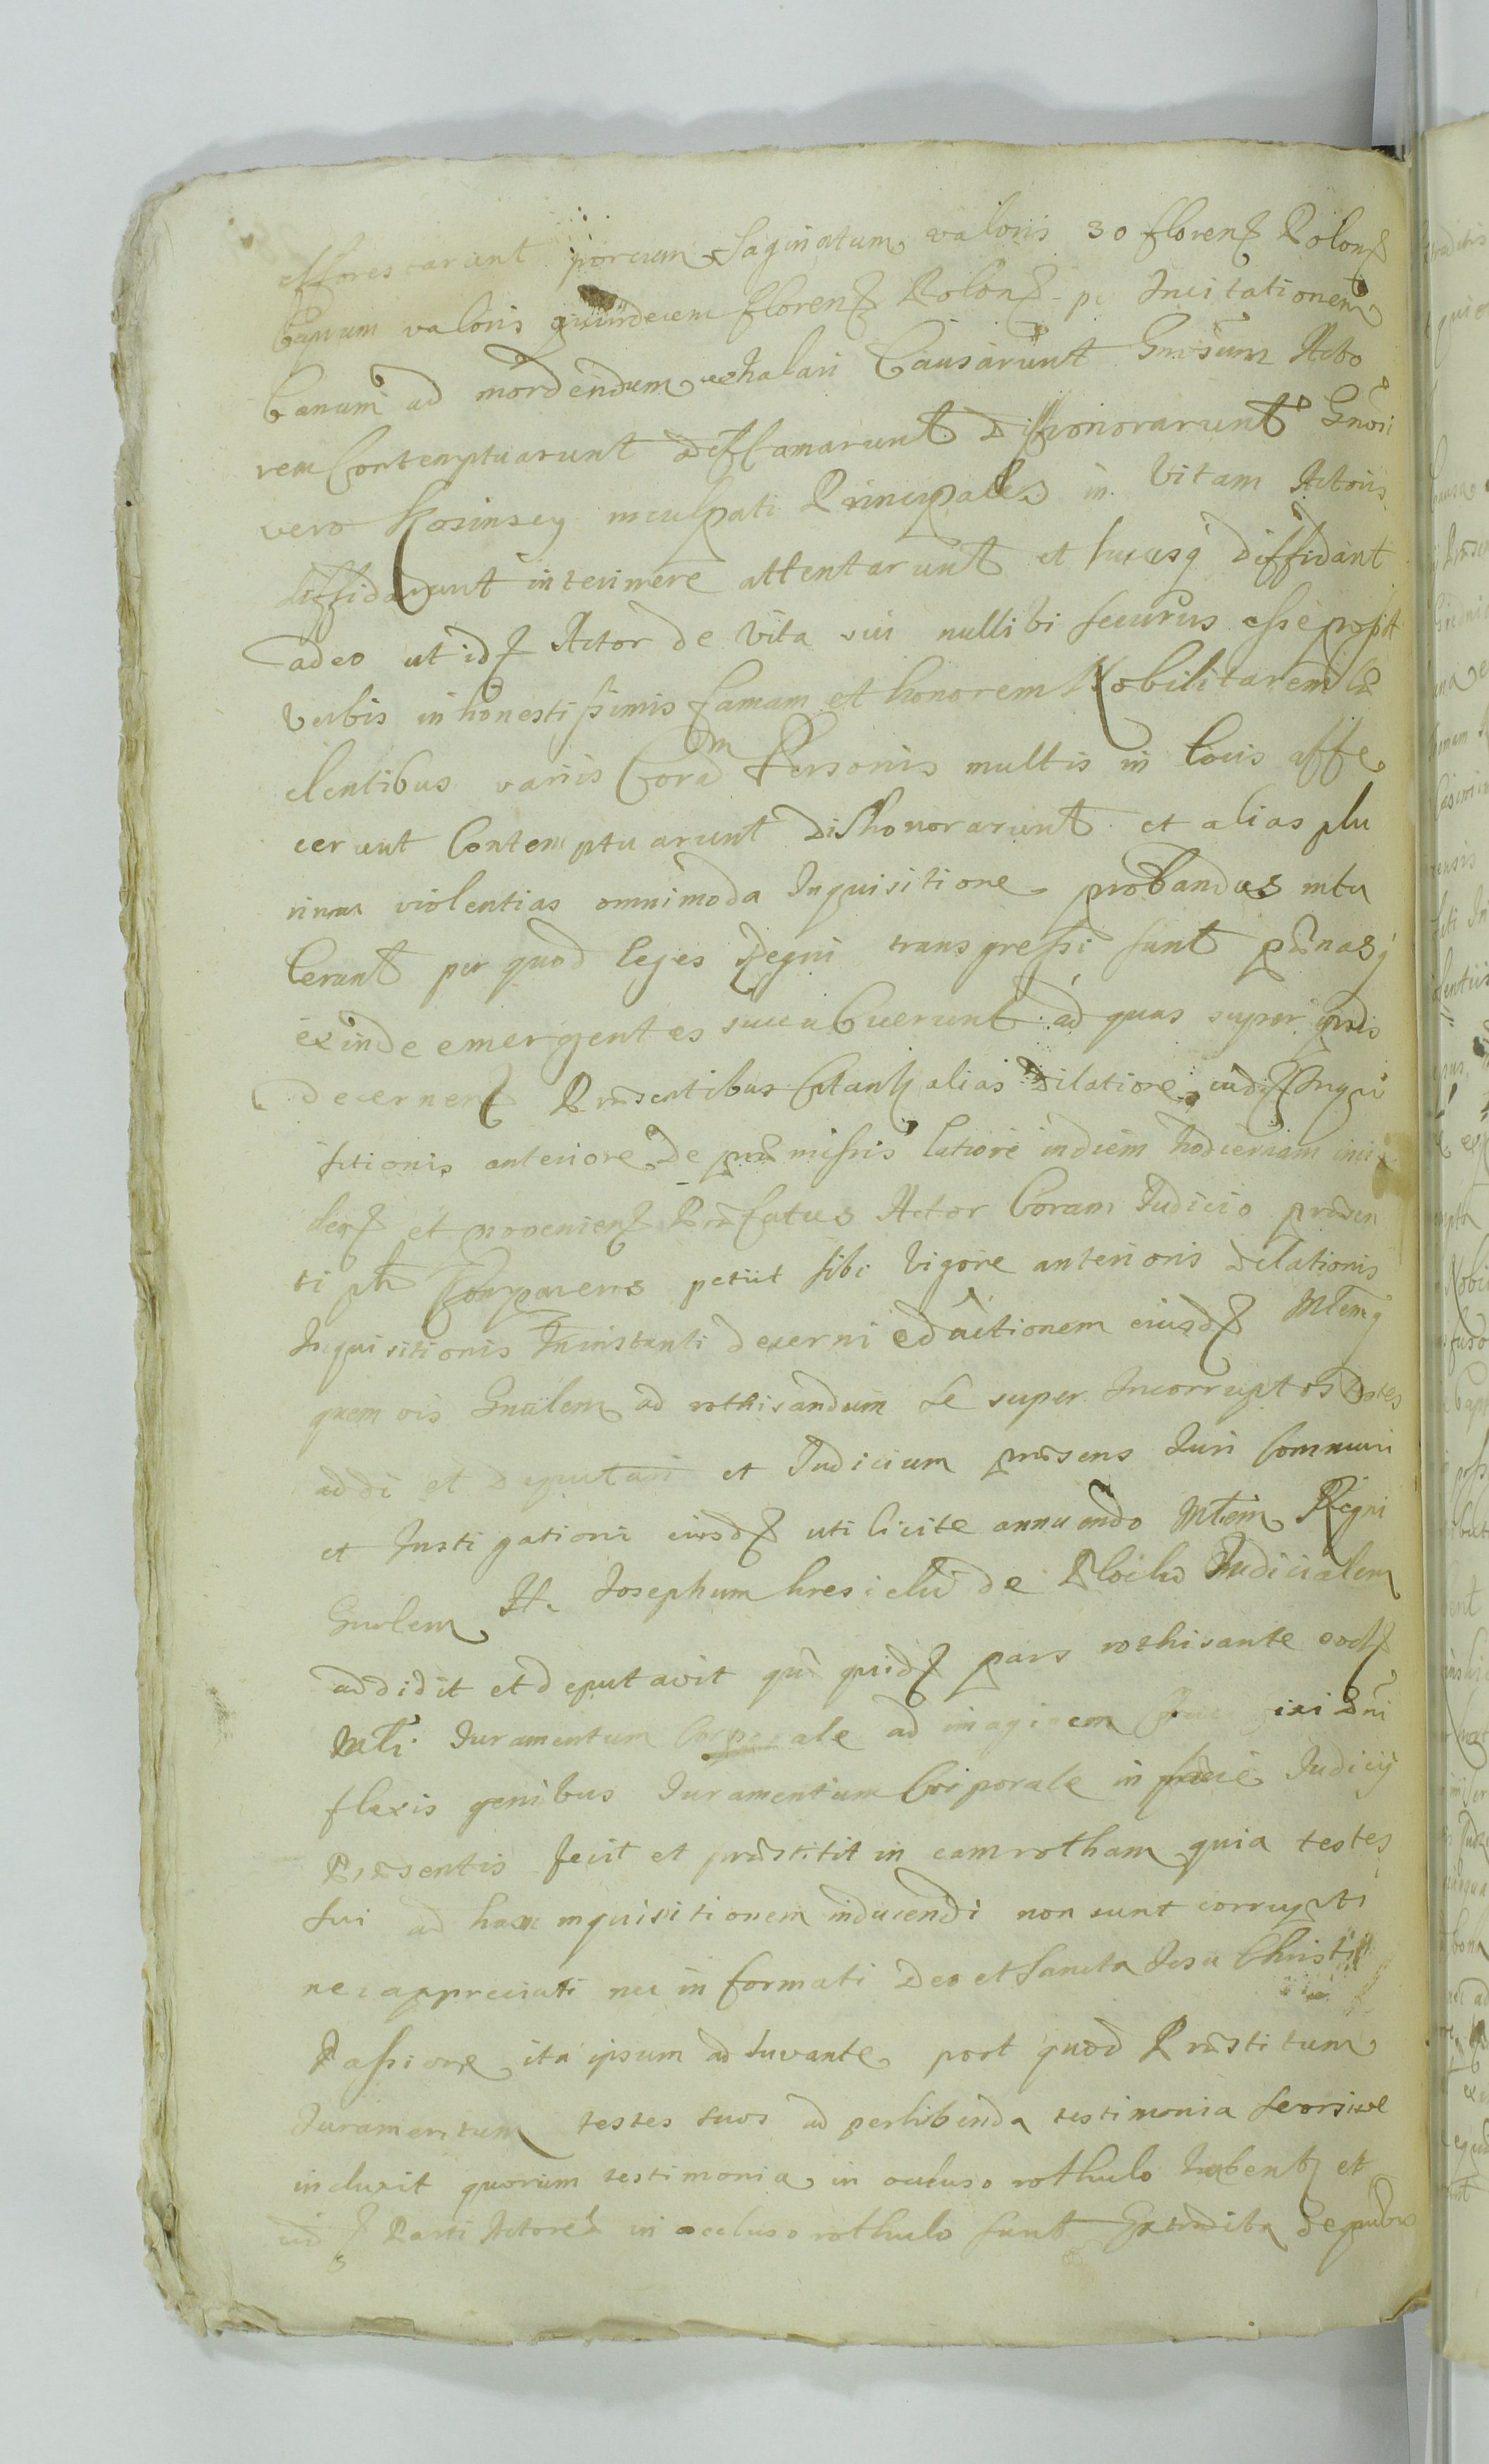 efforestarunt porcum saginatum valoris 30 floren Polon
Caprum valoris quindecem floren Polon pr Incitationem
Canum ad mordendum exhalari Causarunt Gnosum Acto
rem Contemptuarunt deffamarunt disshonorarunt Gnosi
vero Kosinscy inculpati Principales in Vitam Actoris
diffidarunt interimere attentarunt et hucusq diffidant
adeo ut id Actor de Vita sui nullibi securus esse possit
Verbis inhonestissimis famam et honorem Nobilitarem
lentibus variis Coram Personis multis in locis affe
cerunt Contemptuarunt dishonorarunt et alias plu
rimas violentias omnimoda Inquisitione probandas intu
lerunt per quod leges Regni transgressi sunt pænasq
exinde emergentes succubuerunt ad quas super
decernen Præsentibus alias dilatione Inqui
sitionis anteriore de præmissis latiore in diem hodiernam inci
den et provenien Præfatus Actor Coram Judicio præsen
ti Comparens petiit sibi Vigore anterioris dilationis
Inquisitionis In instanti decerni eductionem eiusd Mtemq
quem vis Gnalem ad rothisandum se super Incorruptos testes
addi et deputari et Judicium præsens Juri Communi
et Instigationi eiusd uti licite annuendo Mtem Regni
Gnalem H. Josephum de Judicialem
addidit et deputavit quid pars rothisante eod
Mti Juramentum Corporale ad imaginem ixi Dni
flexis genibus Juramentum Corporale in facie Judicij
Præsentis fecit et præstitit in eam rotham quia testes
sui ad hanc inquisitionem inducendi non sunt corrupti
nec appreciati nec informati Deo et Sancta Jesu Christi
Passione ita ipsum adiuvante post quod Præstitum
Juramentum testes suos ad perhibenda testimonia seorsive
induxit quorum testimonia in occluso rothulo habent et
eid Parti Actoreæ in occluso rothulo sunt Extradita